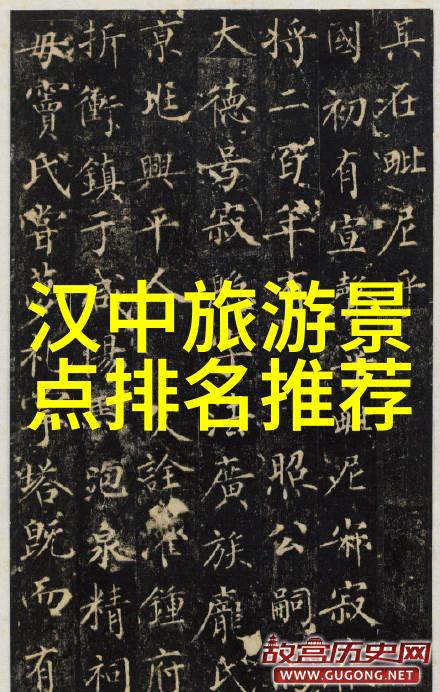 其在毗尼乎
國初有宣 毗尼 寂
將二百年 照公嗣
大德号寂 廣族龐氏
京兆興平人 詮灌鍾府
折衝鎮于咸陽 泡泉精祠
毋竇氏嘗 礼 塔既而有
汉中旅游景
点排名推荐
故宫历史网
WWW.GUGONG.NET